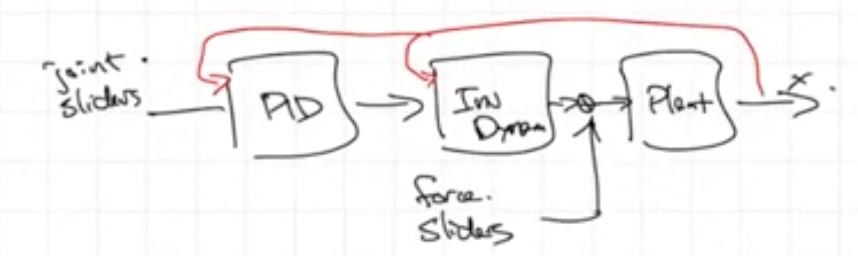 joint
sliders
PID
Inv
Dynam
Plant
x
force
sliders